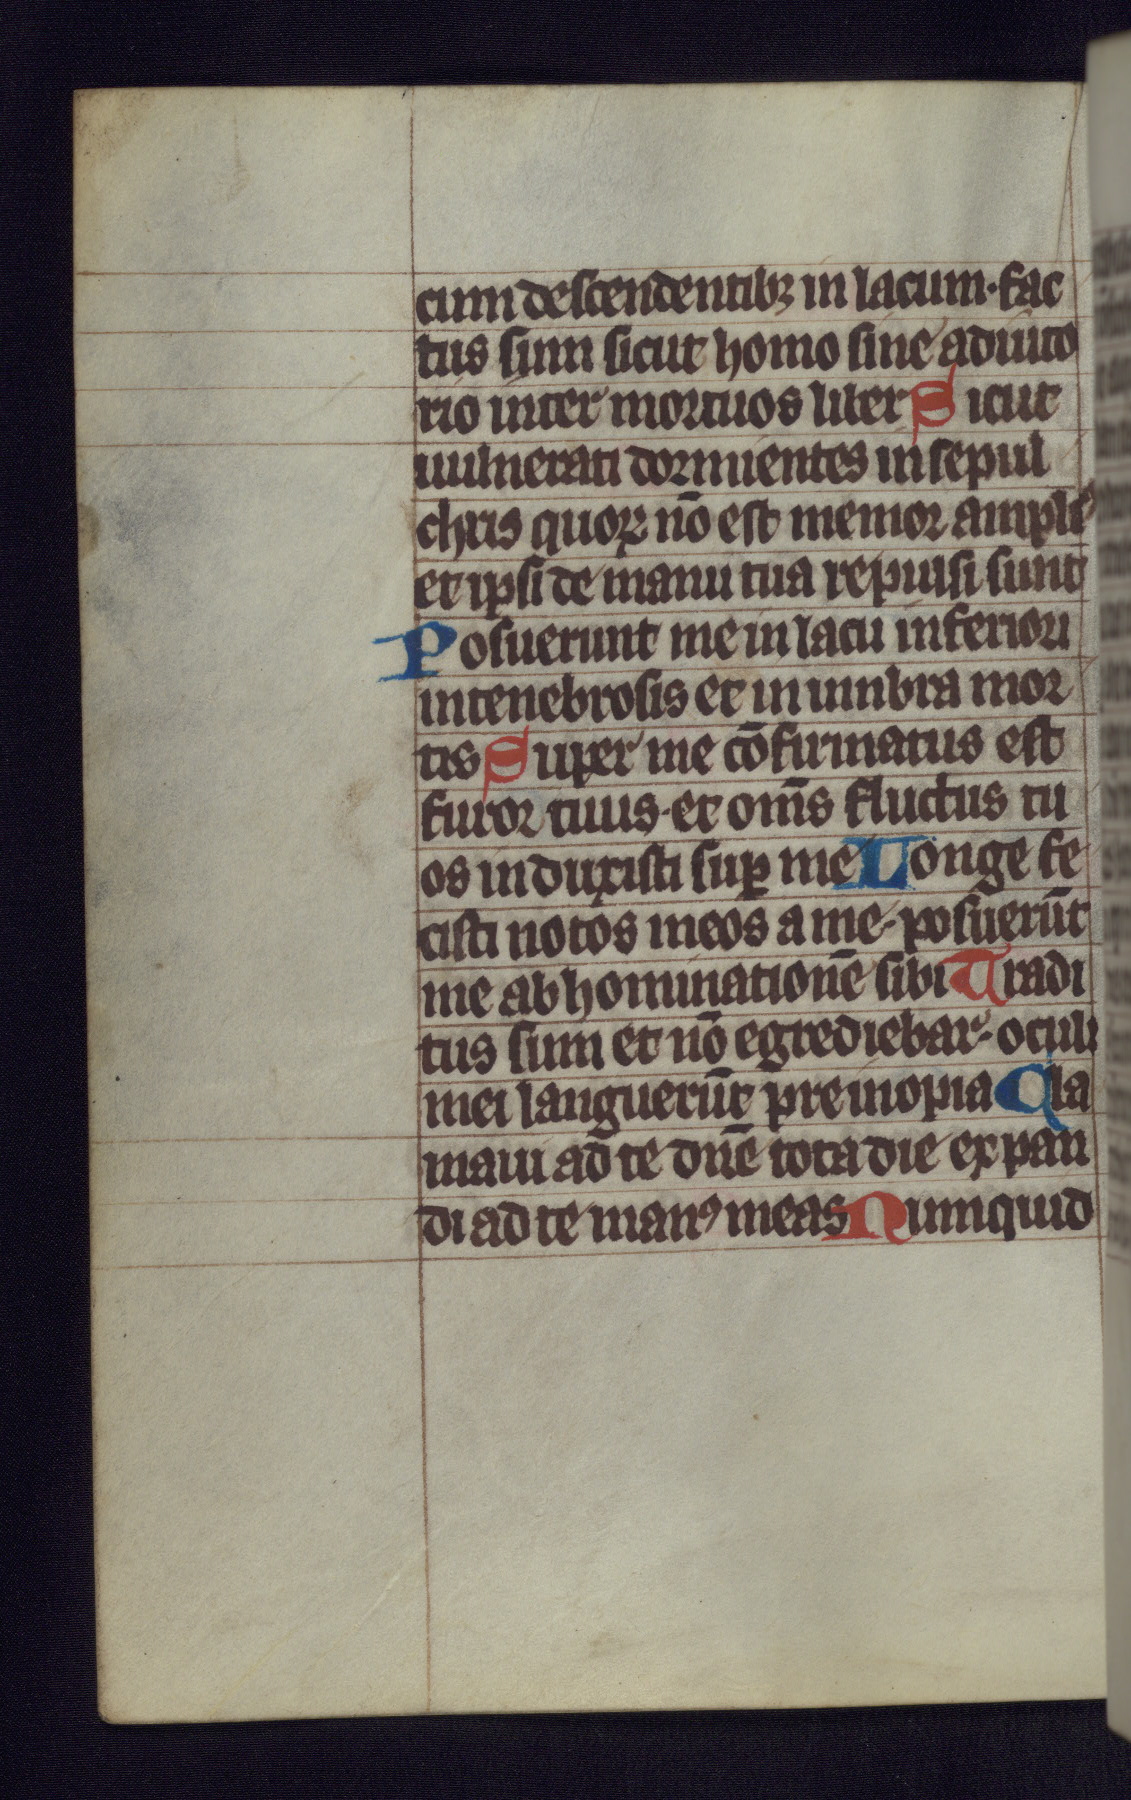 cum descendentibꝫ in lacum·fac
tus sum sicut homo sine adiuto
rio inter mortuos liber Sicut
uulnerati dormientes in sepul
chris quoꝝ nō est memor ampliꝰ
et ipsi de manu tua repulsi sunt
Posuerunt me in lacu inferiori
in tenebrosis et in umbra mor
tis Super me cōfirmatus est
furor tuus·et om̄s fluctus tu
os induxisti suꝑ me Longe fe
cisti notos meos a me·posuerūt
me abhominationē sibi Tradi
tus sum et nō egrediebar·oculi
mei languerūt pre inopia Cla
maui ad te dn̄e tota die expan
di ad te manꝰ meas Numquid